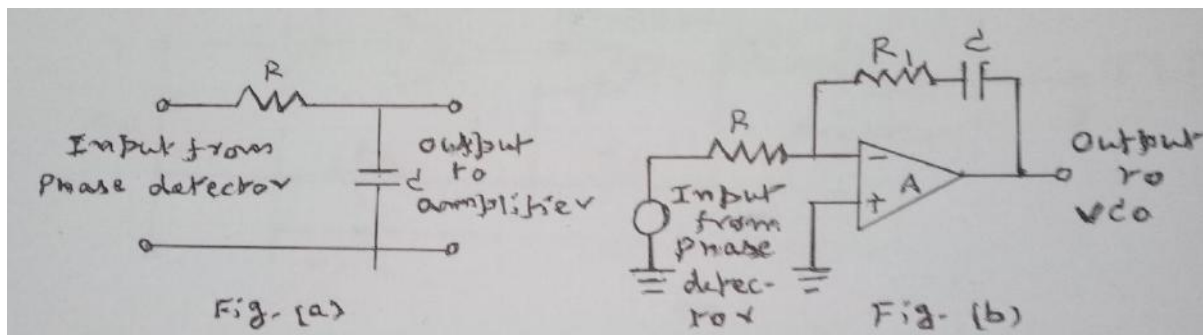 R
Input from
Phase detector
C
Output
to
amplifier
Fig. (a)
R1
C
R
-
A
+
Input
from
Phase
detec-
tor
Output
to
VCO
Fig. (b)